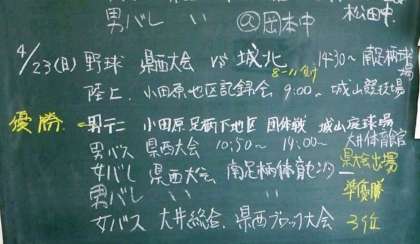 男バレ 〃 〃 ㋐岡本中 松田中
4/23(日) 野球 県西大会 vs 城北 14:30~ 南足柄球場
8-11
陸上. 小田原地区記録会 9:00~ 城山競技場
優勝 ← 男テニ 小田原足柄下地区 団体戦 城山庭球場
男バス 県西大会 10:50~ 14:00~ 大井体育館
県大会出場
女バレ 県西大会 南足柄体育センター
男バレ 〃 〃 準優勝
女バス 大井総合. 県西ブロック大会 3位